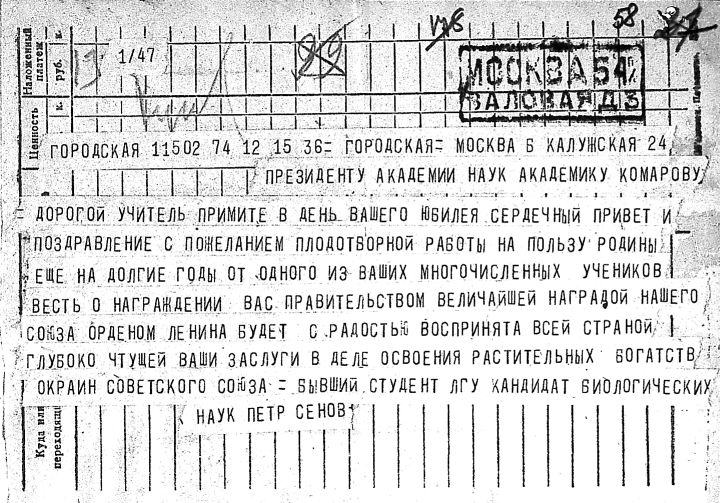 58
Наложенный
платеж
руб.
к.
13
1/47
МОСКВА 54
ВАЛОВАЯ Д 3
Ценность
к.
ГОРОДСКАЯ 11502 74 12 15 36= ГОРОДСКАЯ= МОСКВА Б КАЛУЖСКАЯ 24
ПРЕЗИДЕНТУ АКАДЕМИИ НАУК АКАДЕМИКУ КОМАРОВУ
= ДОРОГОЙ УЧИТЕЛЬ ПРИМИТЕ В ДЕНЬ ВАШЕГО ЮБИЛЕЯ СЕРДЕЧНЫЙ ПРИВЕТ И
ПОЗДРАВЛЕНИЕ С ПОЖЕЛАНИЕМ ПЛОДОТВОРНОЙ РАБОТЫ НА ПОЛЬЗУ РОДИНЫ
ЕЩЕ НА ДОЛГИЕ ГОДЫ ОТ ОДНОГО ИЗ ВАШИХ МНОГОЧИСЛЕННЫХ УЧЕНИКОВ
ВЕСТЬ О НАГРАЖДЕНИИ ВАС ПРАВИТЕЛЬСТВОМ ВЕЛИЧАЙШЕЙ НАГРАДОЙ НАШЕГО
СОЮЗА ОРДЕНОМ ЛЕНИНА БУДЕТ С РАДОСТЬЮ ВОСПРИНЯТА ВСЕЙ СТРАНОЙ
ГЛУБОКО ЧТУЩЕЙ ВАШИ ЗАСЛУГИ В ДЕЛЕ ОСВОЕНИЯ РАСТИТЕЛЬНЫХ БОГАТСТВ
ОКРАИН СОВЕТСКОГО СОЮЗА = БЫВШИЙ СТУДЕНТ ЛГУ КАНДИДАТ БИОЛОГИЧЕСКИХ
НАУК ПЕТР СЕНОВ
Куда или
переходящ